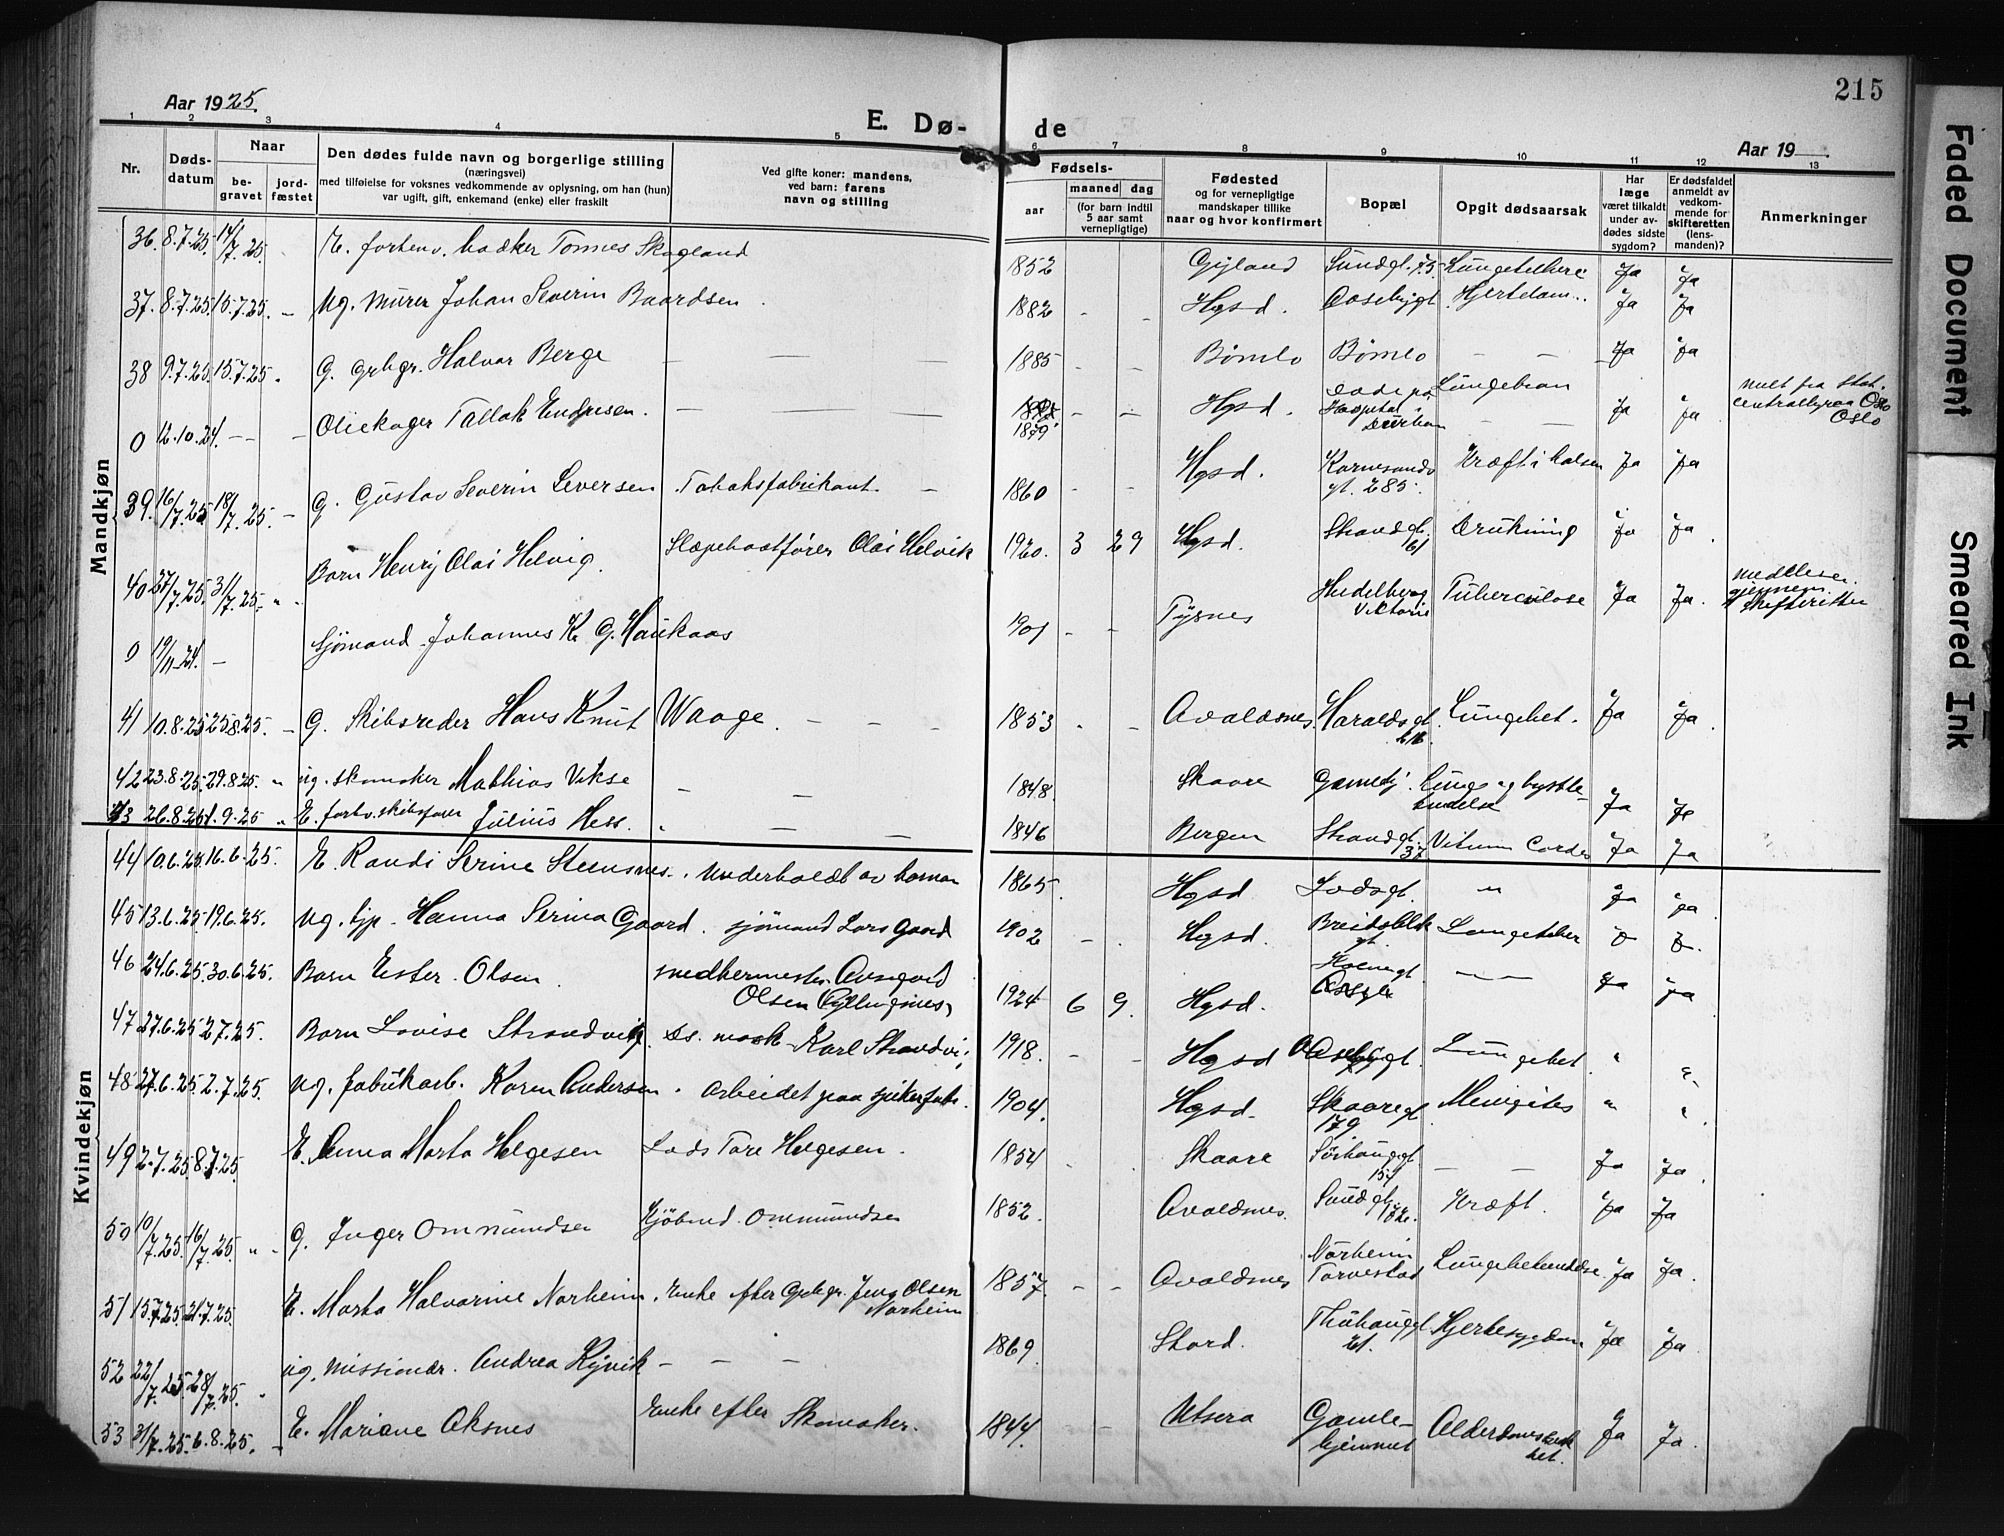 215
Aar 1925.
E. Dø-
de
Aar 19
1 2 3 4 5 6 7 8 9 10 11 12 13
Nr.
Døds-
datum
Naar
be-
gravet
jord-
fæstet
Den dødes fulde navn og borgerlige stilling
(næringsvei)
med tilføielse for voksnes vedkommende av oplysning, om han (hun)
var ugift, gift, enkemand (enke) eller fraskilt
Ved gifte koner: mandens,
ved barn: farens
navn og stilling
Fødsels-
aar
maaned dag
(for barn indtil
5 aar samt
vernepligtige)
Fødested
og for vernepligtige
mandskaper tillike
naar og hvor konfirmert
Bopæl
Opgit dødsaarsak
Har
læge
været tilkaldt
under av-
dødes sidste
sygdom?
Er dødsfaldet
anmeldt av
vedkom-
mende for
skifteretten
(lens-
manden)?
Anmerkninger
Mandkjøn
36. 8.7.25. 14/7.25. E. forhenv. baker Tonnes Skogland 1852 Gyland Sundgt. 75 Ja Ja
37. 8.7.25 15.7.25. – Ug. murer Johan Severin Baardsen 1882 - - Hgsd. Aasebygt Ja Ja
38 9.7.25. 15.7.25 " G. grbgr. Halvar Berge — — — 1885 - - Bømlo Bømlo — — Ja Ja
0 12.10.24. – – Tallak Endresen. — — — 1879 - - Hgsd. Døde på Hospital i Durban Ja Ja
39. 16/7.25 18/7.25. – G. Gustav Severin Seversen Tobaksfabrikant. – 1860 - - Hgsd. Karmsunds gt. 285. Kræft i halsen Ja Ja
40 27/7.25. 31/7.25. " " Barn Henry Olai Helvig. Slæpebaatfører Olai Helvik 1920. 3 29 Hgsd. Strandgt. 61 Drukning Ja Ja
0 19/11-24. – Sjömand Johannes K. G. Haukaas 1901 - - Tysnes Heidelberg Viktoria Tuberculose Ja Ja. gjennem skifteretten
41 10.8.25 25.8.25. – G. Skibsreder Hans Knut Waage. – – – 1853 - - Avaldsnes Haraldsgt. Lungebet. Ja Ja
42 23.8.25. 29.8.25. " ug. skomaker Mathias Vikse – – 1848. Skaare Gamlehj. Ja Ja
43 26.8.25 1.9.25 " E. forhv. skibsfører Julius Hess. " – – – 1846 Bergen Strandgt. 37 Vitium Cordis Ja Ja
Kvindekjøn
44 10.6.25 16.6.25. E. Randi Serine Steensnes. Underholdt av barna 1865. Hgsd Lodsgt. " Ja Ja
45 13.6.25 19.6.25. Ug. tjp. Hanna Serina Gaard. sjömand Lars Gaard 1902 – - Hgsd. Breidablik gt.
46 24.6.25. 30.6.25. Barn Ester Olsen. Olsen 1924 6 9. Hgsd. — — Ja Ja
47 27.6.25 2.7.25. Barn Lovise Strandvig. Ds. mask. Karl Strandvi 1918. - - Hgsd Aasebygt. Lungebet. " "
48 27.6.25 2.7.25 Ug. fabrikarb. Karen Andersen. Arbeidet paa spikerfabr. 1904. Hgsd. Skaaregt. 179 Meningites " "
49 2.7.25 8.7.25. E. Anna Marta Helgesen Lods Tore Helgesen. 1854 Skaare Sörhauggt 157 — — Ja Ja
50 10/7.25. 16/7.25 " " G. Inger Ommundsen Kjöbmd. Ommundsen 1852. Avaldsnes. Sundgt. 132. Kræft. Ja Ja
51 15.7.25. 21.7.25. E. Marta Halvarine Norheim. Enke efter Grbgr. Jens Olsen Norheim 1857. - - Avaldsnes Norheim Torvestad Ja Ja.
52 22/7.25. 28/7.25. " ug. missionær. Andrea Kyvik – – – 1869. Stord. Thuhauggt 21. Hjertesygdom Ja Ja.
53 31/7.25. 6.8.25. – E. Mariane Oksnes Enke efter Skomaker. 1844. - - Utsera Gamle-hjemmet Ja Ja.
Faded Document
Smeared Ink